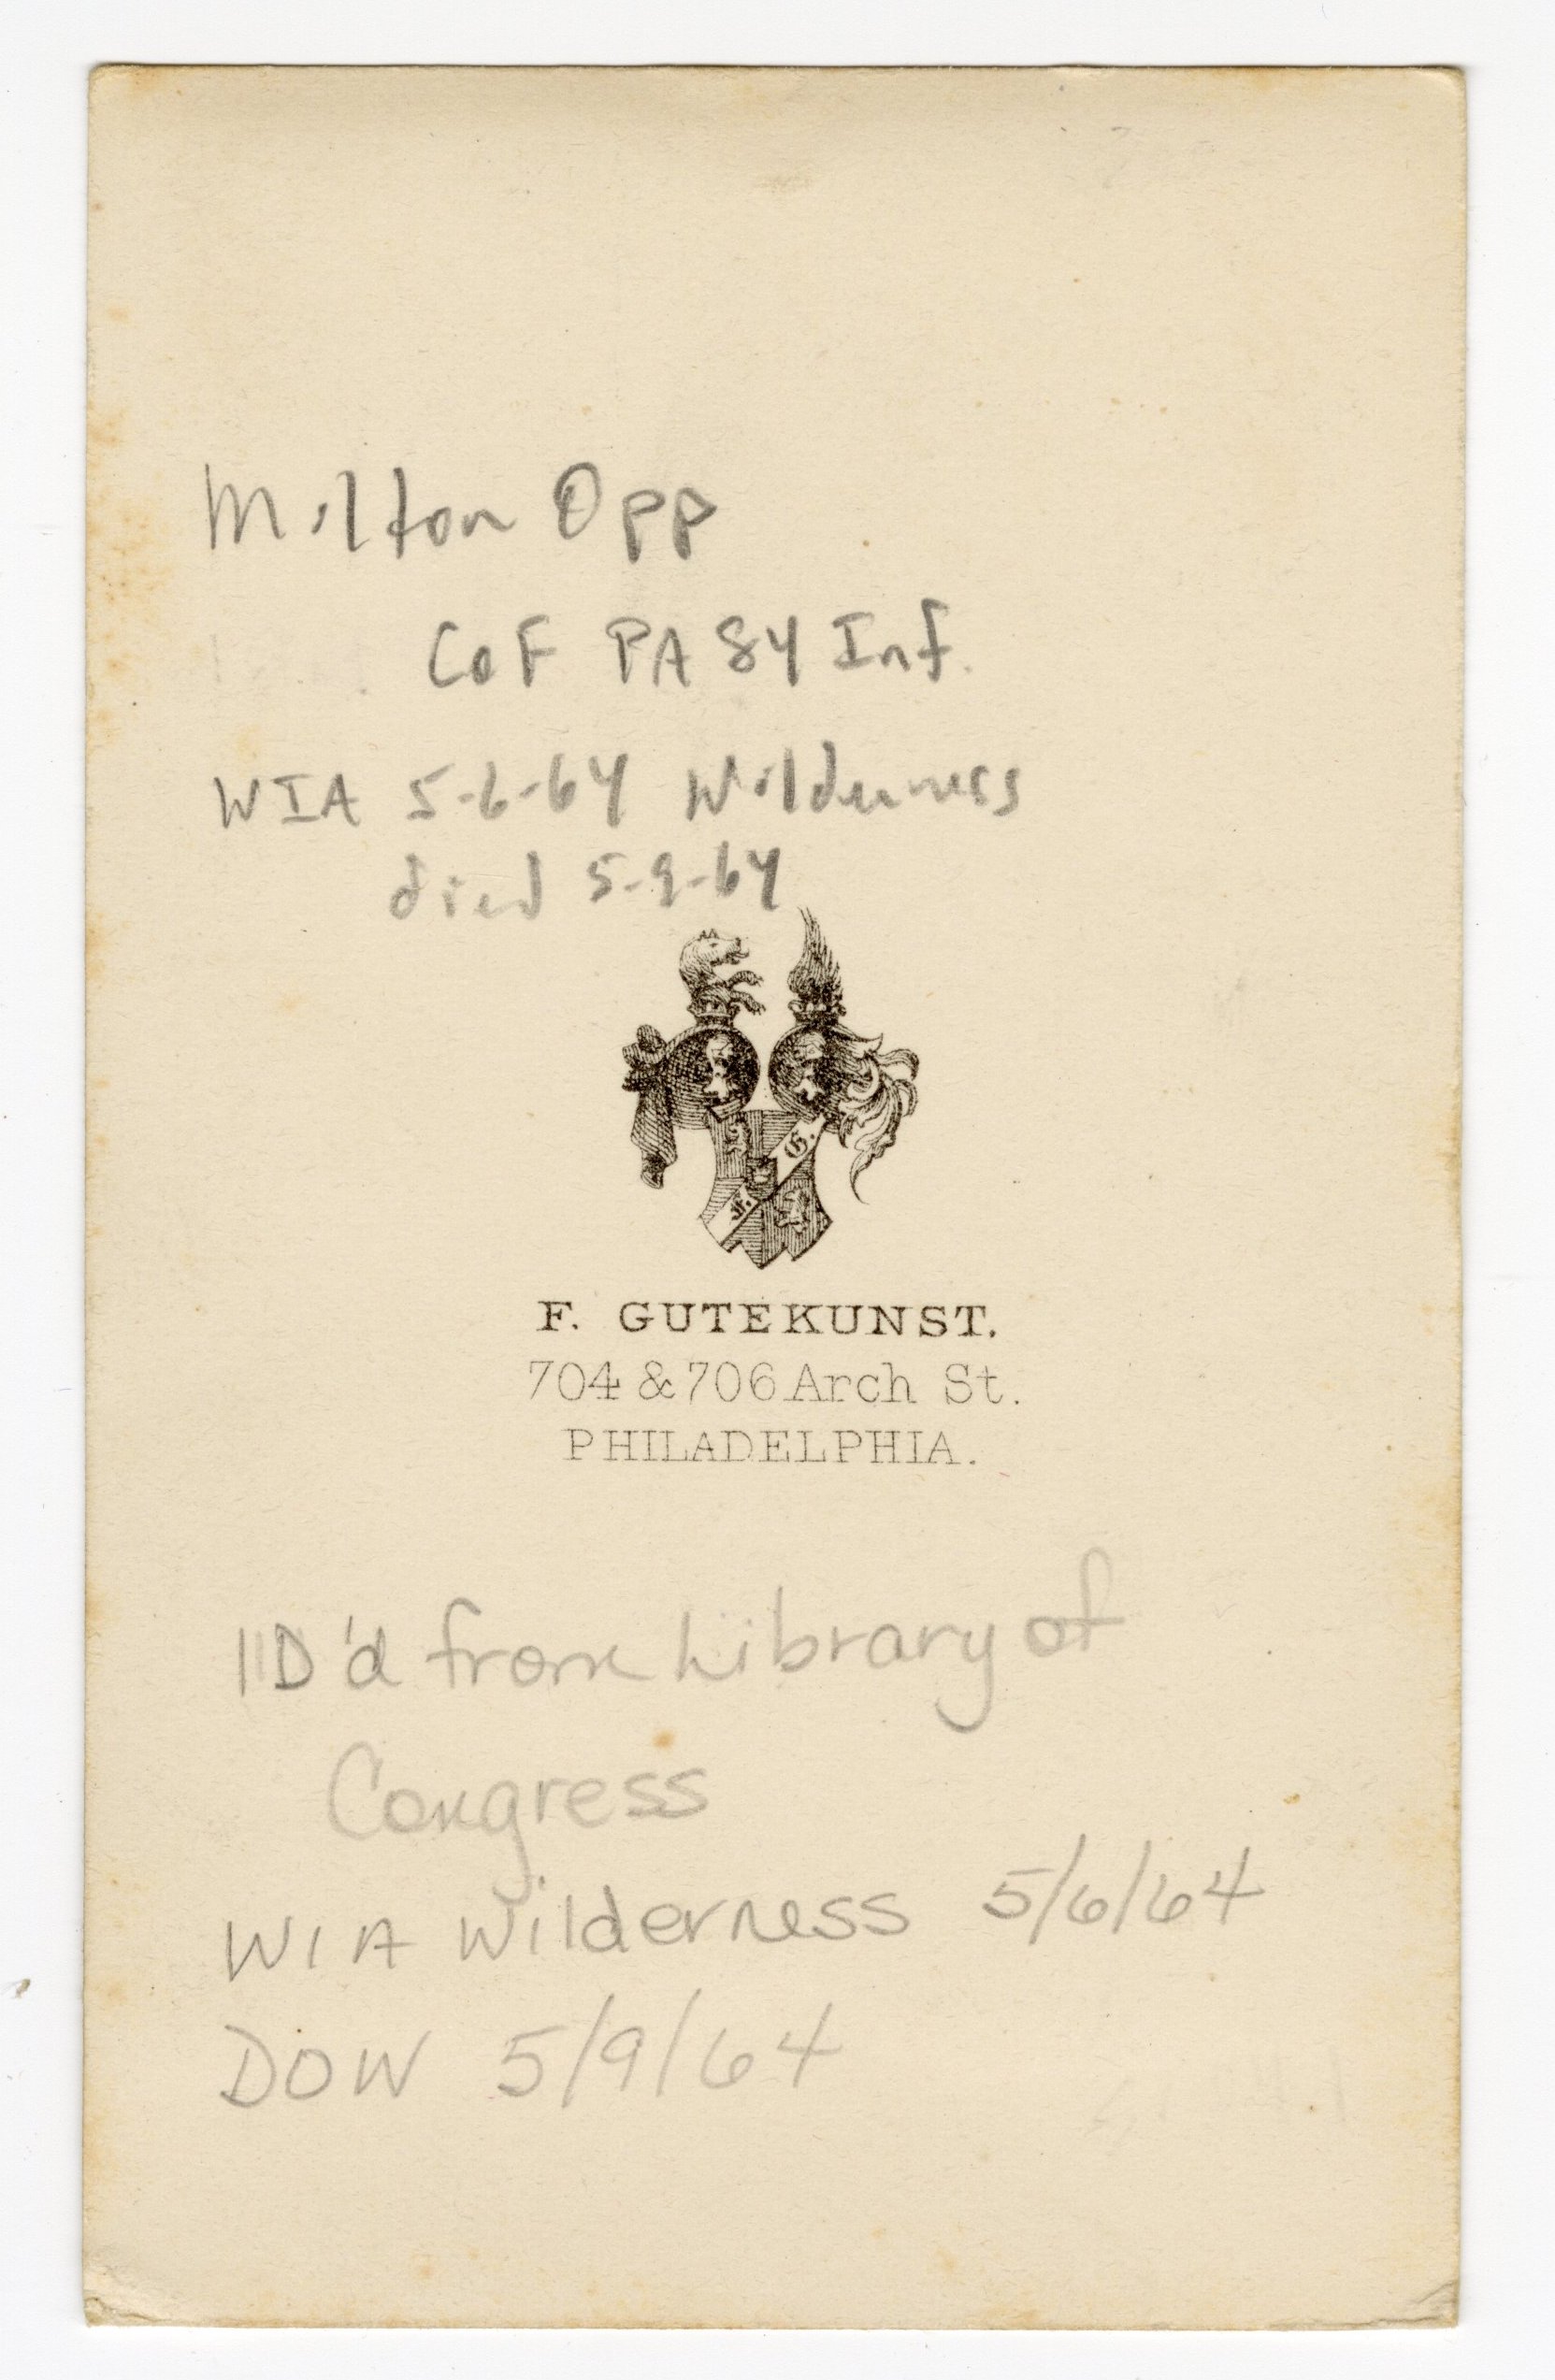 Milton Opp
Co F PA 84 Inf.
WIA 5-6-64 Wilderness
died 5-9-64
G.
F.
F. GUTEKUNST.
704 & 706 Arch St.
PHILADELPHIA.
ID'd from Library of
Congress
WIA Wilderness 5/6/64
DOW 5/9/64